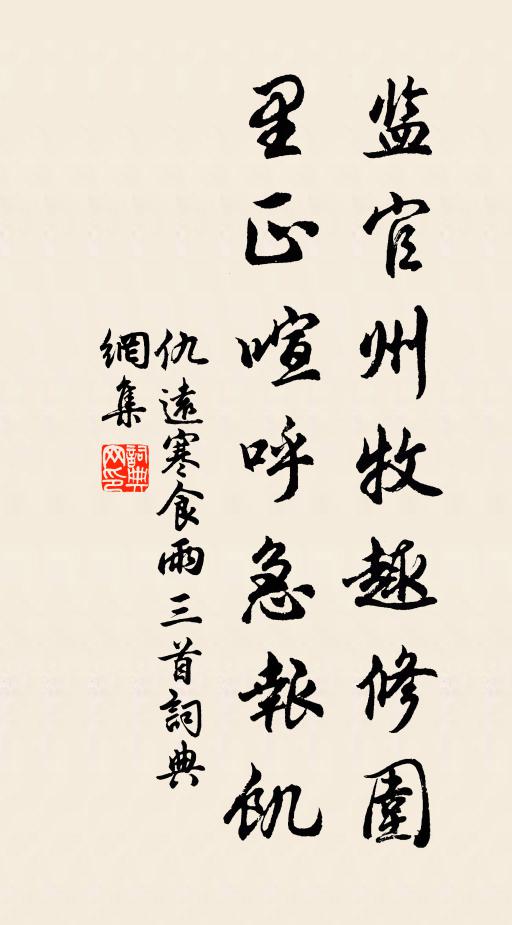 监官州牧趣修围
里正喧呼急報飢
仇遠寒食雨三首詞典
網集
詞典网印